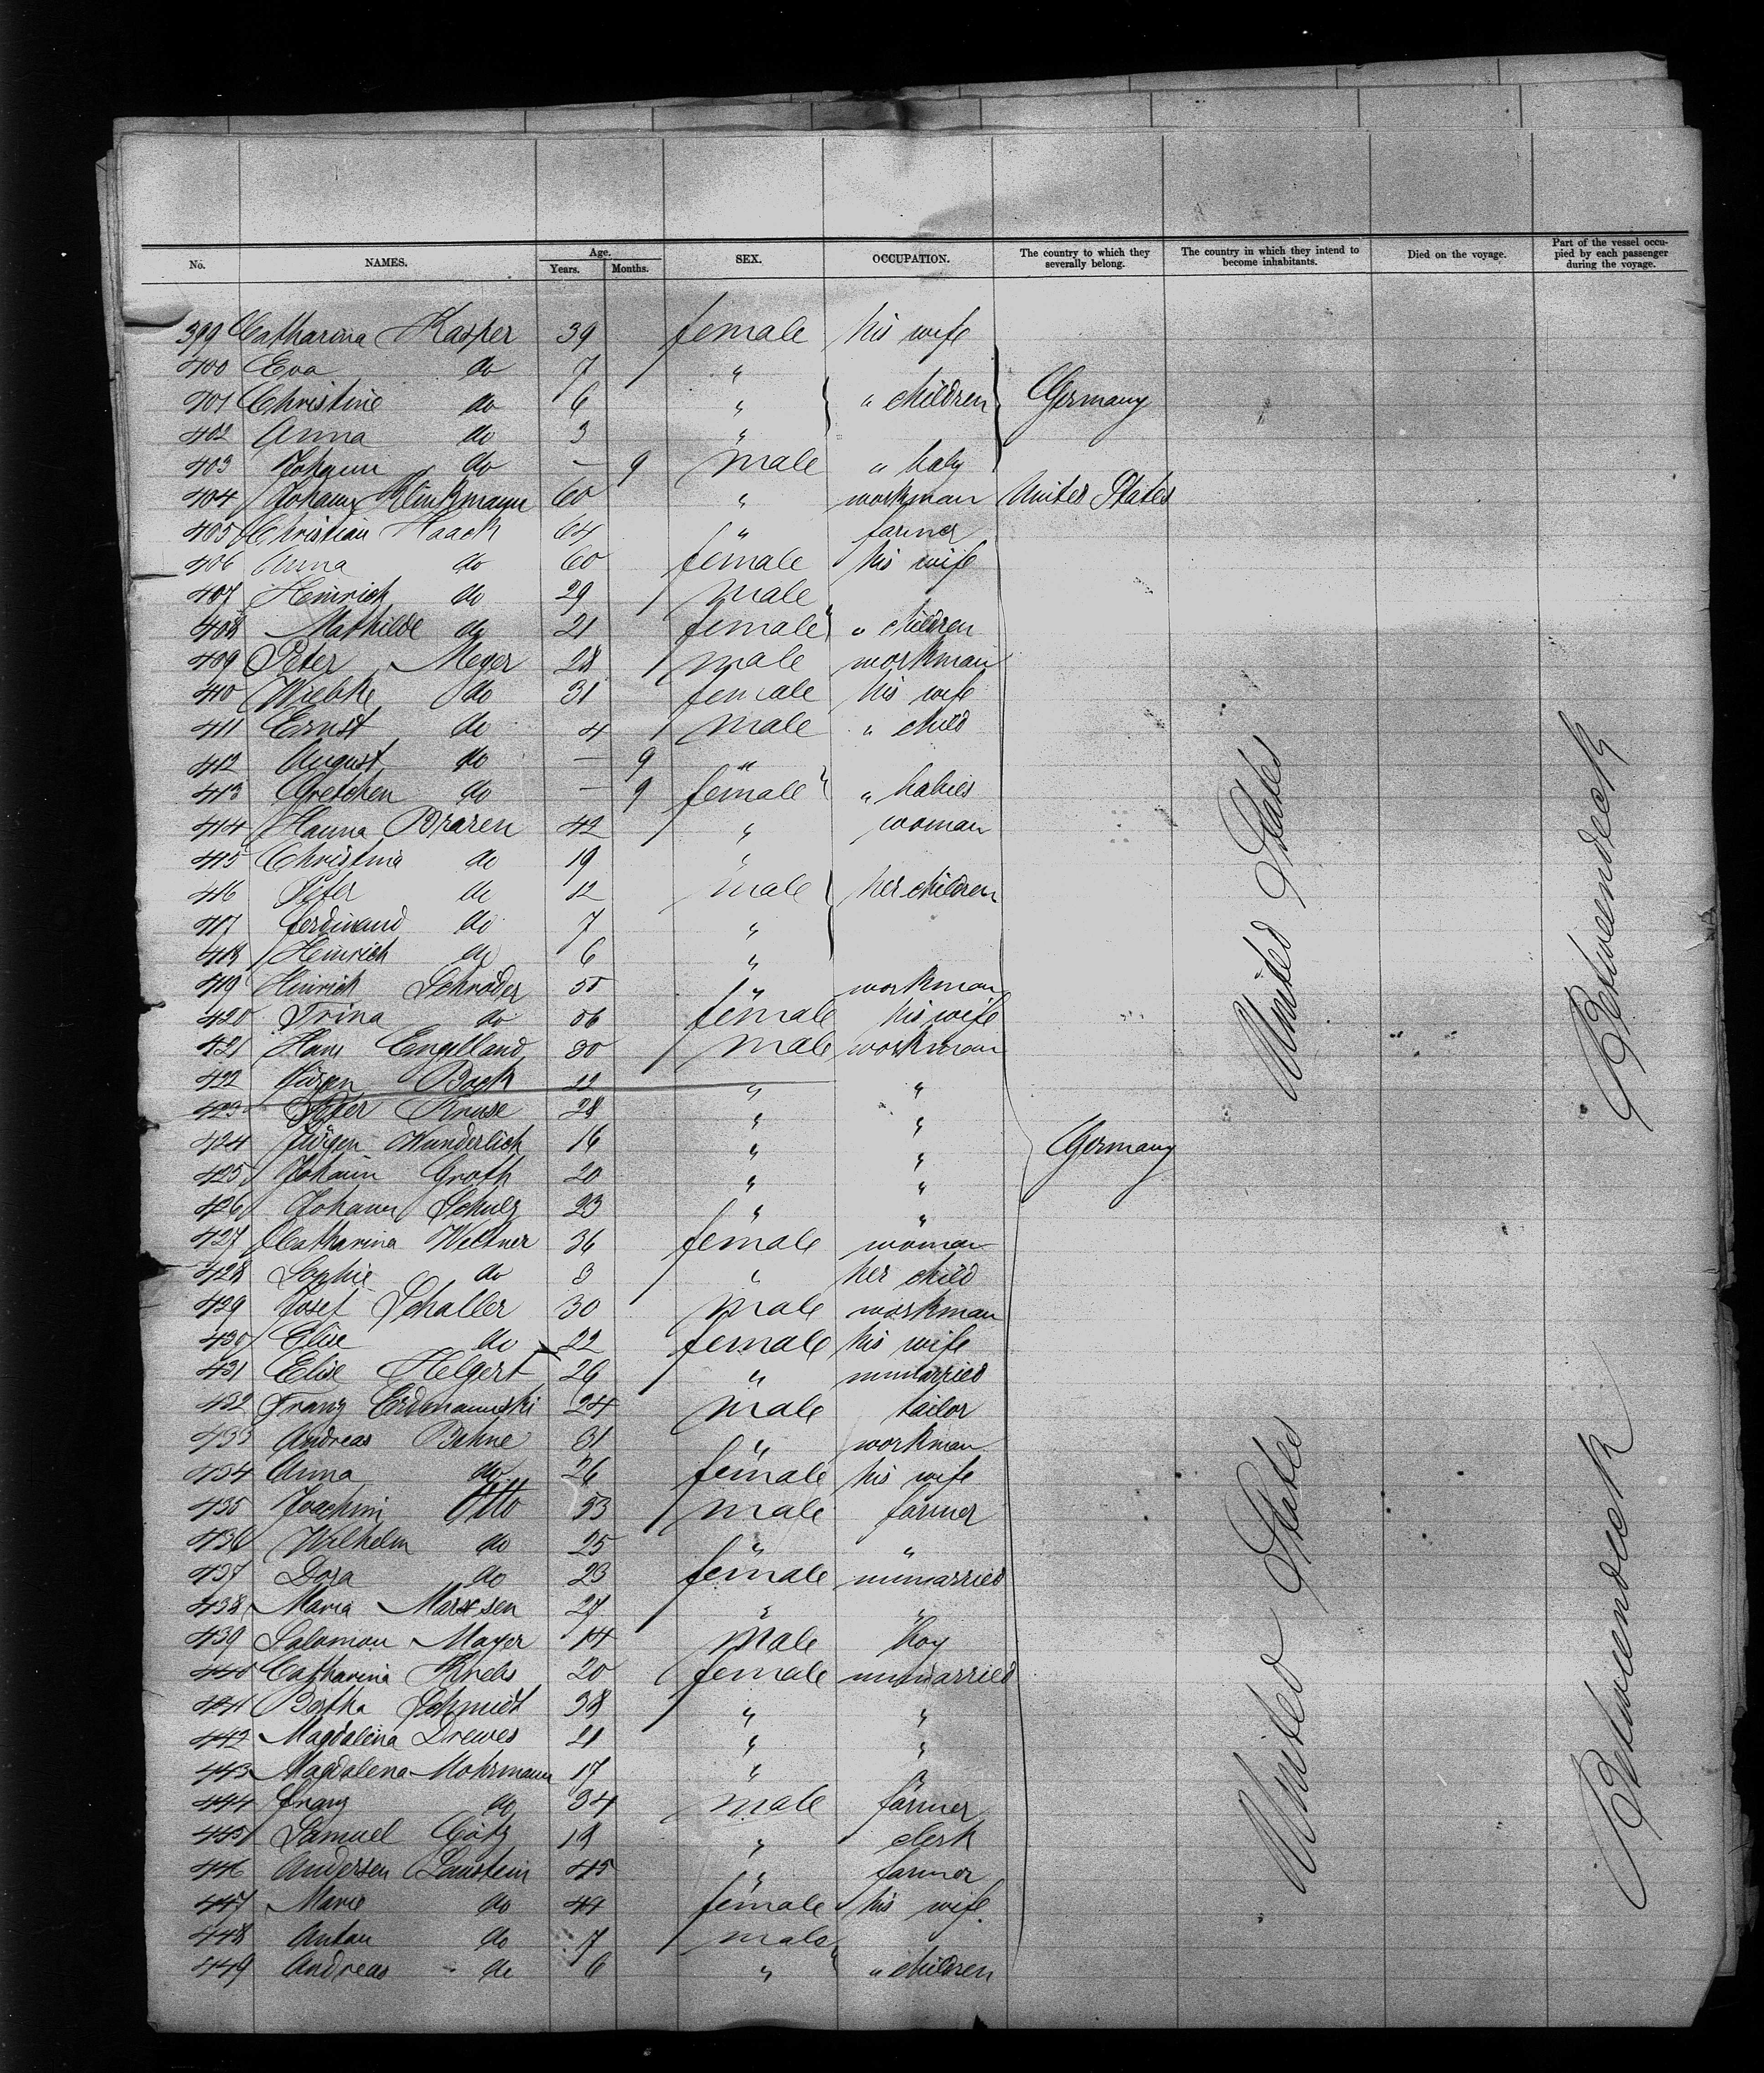 No. NAMES. Age. Years. Months. SEX. OCCUPATION. The country to which they severally belong. The country in which they intend to become inhabitants. Died on the voyage. Part of the vessel occupied by each passenger during the voyage.
399 Catharina Kasper 39 female his wife
400 Eva do 7 "
401 Christine do 6 " " children Germany
402 Anna do 3 "
403 Johann do — 9 male " baby
404 Johann Klinkmann 60 " workman United States
405 Christian Haack 64 " farmer
406 Anna do 60 female his wife
407 Heinrich do 29 male
408 Mathilde do 21 female " children
409 Peter Meyer 28 male workman
410 Wiebke do 31 female his wife
411 Ernst do 4 male " child
412 August do — 9 "
413 Gretchen do — 9 female " babies
414 Hanna Braren 42 " woman
415 Christina do 19 "
416 Peter do 12 male her children
417 Ferdinand do 7 "
418 Heinrich do 6 "
419 Hinrich Schröder 55 " workman
420 Trina do 56 female his wife
421 Hans Engelland 30 male workman
422 Jürgen Bock 22 " "
423 Peter Kruse 28 " "
424 Jürgen Wunderlich 16 " " Germany
425 Johann Groth 20 " "
426 Johann Schulz 23 " "
427 Catharina Weltner 36 female woman
428 Sophie do 3 " her child
429 Josef Schaller 30 male workman
430 Elise do 22 female his wife
431 Elise Helgert 26 " unmarried
432 Franz Erdmannski 24 male tailor
433 Andreas Behne 31 " workman
434 Anna do 26 female his wife
435 Joachim Otto 53 male farmer
436 Wilhelm do 25 " "
437 Dora do 23 female unmarried
438 Maria Marxsen 27 " "
439 Salomon Mayer 14 male boy
440 Catharina Krebs 20 female unmarried
441 Bertha Schmidt 38 " "
442 Magdalena Drewes 21 " "
443 Magdalena Mohrmann 17 " "
444 Franz do 34 male farmer
445 Samuel Götz 18 " clerk
446 Andersen Laustein 45 " farmer
447 Marie do 44 female his wife
448 Anton do 7 male
449 Andreas do 6 " " children
United States
Betweendeck
United States
Betweendeck